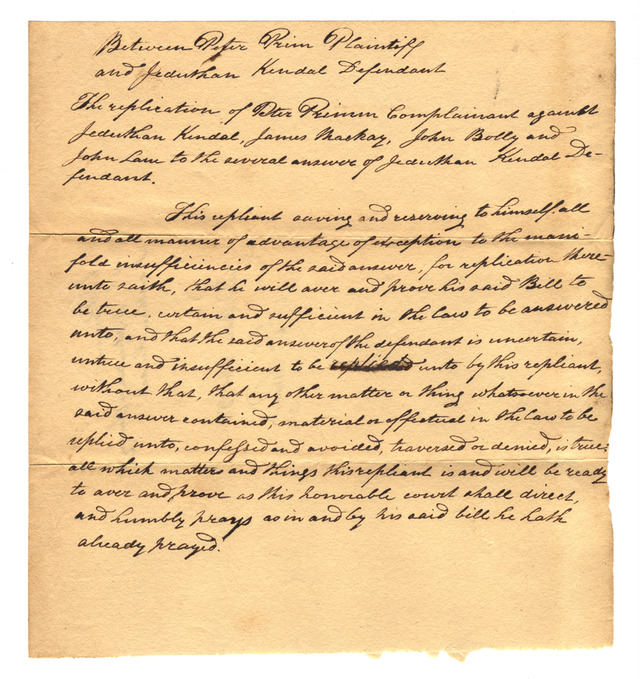 Between Peter Prim Plaintiff
and Jeduthan Kendal Defendant
The replication of Peter Primm Complainant against
Jeduthan Kendal, James Mackay, John Bolly and
John Law to the several answer of Jeduthan Kendal De-
fendant.
This repliant saving and reserving to himself all
and all manner of advantage of exception to the mani-
fold insufficiencies of the said answer, for replication there-
unto saith, that he will aver and prove his said Bill to
be true, certain and sufficient in the law to be answered
unto, and that the said answer of the defendant is uncertain,
untrue and insufficient to be replied unto by this repliant,
without that, that any other matter or thing whatsoever in the
said answer contained, material or effectual in the law to be
replied unto, confessed and avoided, traversed or denied, is true;
all which matters and things this repliant is and will be ready
to aver and prove as this honorable court shall direct,
and humbly prays as in and by his said bill he hath
already prayed.